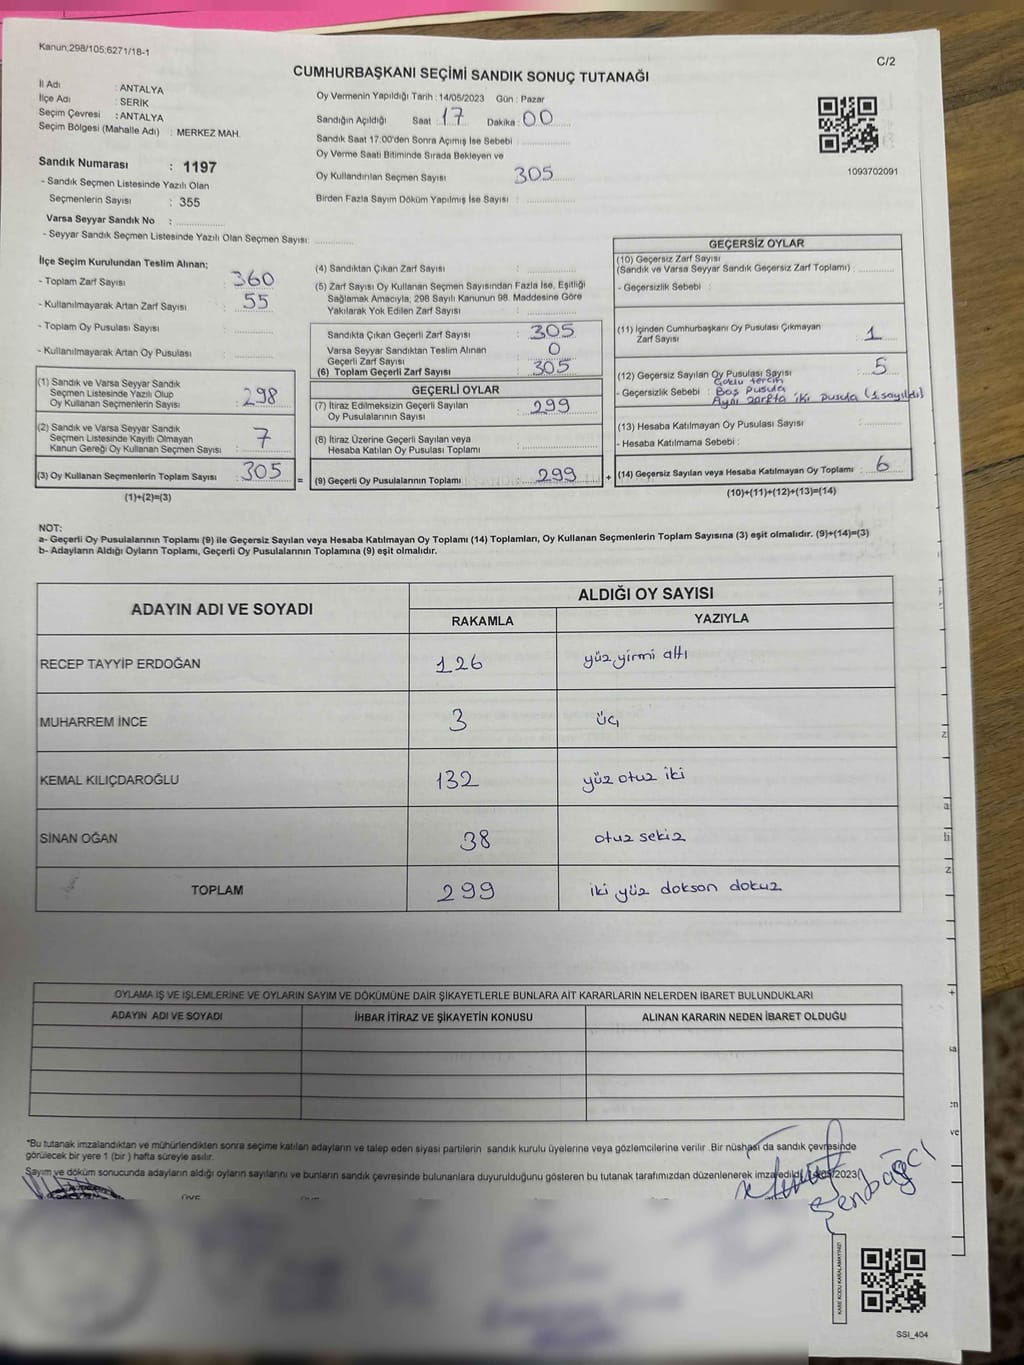 Kanun;298/105;6271/18-1
C/2
CUMHURBAŞKANI SEÇİMİ SANDIK SONUÇ TUTANAĞI
İl Adı : ANTALYA
İlçe Adı : SERİK
Seçim Çevresi : ANTALYA
Seçim Bölgesi (Mahalle Adı) : MERKEZ MAH.
Sandık Numarası : 1197
- Sandık Seçmen Listesinde Yazılı Olan
Seçmenlerin Sayısı : 355
Varsa Seyyar Sandık No :
- Seyyar Sandık Seçmen Listesinde Yazılı Olan Seçmen Sayısı:
Oy Vermenin Yapıldığı Tarih : 14/05/2023 Gün : Pazar
Sandığın Açıldığı Saat : 17 Dakika : 00
Sandık Saat 17.00'den Sonra Açımış İse Sebebi :
Oy Verme Saati Bitiminde Sırada Bekleyen ve
Oy Kullandırılan Seçmen Sayısı : 305
Birden Fazla Sayım Döküm Yapılmış İse Sayısı :
1093702091
İlçe Seçim Kurulundan Teslim Alınan;
- Toplam Zarf Sayısı : 360
- Kullanılmayarak Artan Zarf Sayısı : 55
- Toplam Oy Pusulası Sayısı :
- Kullanılmayarak Artan Oy Pusulası :
(1) Sandık ve Varsa Seyyar Sandık
Seçmen Listesinde Yazılı Olup
Oy Kullanan Seçmenlerin Sayısı : 298
(2) Sandık ve Varsa Seyyar Sandık
Seçmen Listesinde Kayıtlı Olmayan
Kanun Gereği Oy Kullanan Seçmen Sayısı : 7
(3) Oy Kullanan Seçmenlerin Toplam Sayısı : 305
(1)+(2)=(3)
(4) Sandıktan Çıkan Zarf Sayısı :
(5) Zarf Sayısı Oy Kullanan Seçmen Sayısından Fazla İse, Eşitliği
Sağlamak Amacıyla, 298 Sayılı Kanunun 98. Maddesine Göre
Yakılarak Yok Edilen Zarf Sayısı :
Sandıkta Çıkan Geçerli Zarf Sayısı : 305
Varsa Seyyar Sandıktan Teslim Alınan
Geçerli Zarf Sayısı : 0
(6) Toplam Geçerli Zarf Sayısı : 305
GEÇERLİ OYLAR
(7) İtiraz Edilmeksizin Geçerli Sayılan
Oy Pusulalarının Sayısı : 299
(8) İtiraz Üzerine Geçerli Sayılan veya
Hesaba Katılan Oy Pusulası Toplamı :
= (9) Geçerli Oy Pusulalarının Toplamı : 299
GEÇERSİZ OYLAR
(10) Geçersiz Zarf Sayısı
(Sandık ve Varsa Seyyar Sandık Geçersiz Zarf Toplamı) :
- Geçersizlik Sebebi :
(11) İçinden Cumhurbaşkanı Oy Pusulası Çıkmayan
Zarf Sayısı : 1
(12) Geçersiz Sayılan Oy Pusulası Sayısı : 5
Çoklu tercih
- Geçersizlik Sebebi : Boş pusula
Aynı zarfta iki pusula (1 sayıldı)
(13) Hesaba Katılmayan Oy Pusulası Sayısı :
- Hesaba Katılmama Sebebi :
+ (14) Geçersiz Sayılan veya Hesaba Katılmayan Oy Toplamı : 6
(10)+(11)+(12)+(13)=(14)
NOT:
a- Geçerli Oy Pusulalarının Toplamı (9) ile Geçersiz Sayılan veya Hesaba Katılmayan Oy Toplamı (14) Toplamları, Oy Kullanan Seçmenlerin Toplam Sayısına (3) eşit olmalıdır. (9)+(14)=(3)
b- Adayların Aldığı Oyların Toplamı, Geçerli Oy Pusulalarının Toplamına (9) eşit olmalıdır.
ADAYIN ADI VE SOYADI
ALDIĞI OY SAYISI
RAKAMLA YAZIYLA
RECEP TAYYİP ERDOĞAN 126 yüz yirmi altı
MUHARREM İNCE 3 üç
KEMAL KILIÇDAROĞLU 132 yüz otuz iki
SİNAN OĞAN 38 otuz sekiz
TOPLAM 299 iki yüz doksan dokuz
OYLAMA İŞ VE İŞLEMLERİNE VE OYLARIN SAYIM VE DÖKÜMÜNE DAİR ŞİKAYETLERLE BUNLARA AİT KARARLARIN NELERDEN İBARET BULUNDUKLARI
ADAYIN ADI VE SOYADI İHBAR İTİRAZ VE ŞİKAYETİN KONUSU ALINAN KARARIN NEDEN İBARET OLDUĞU
*Bu tutanak imzalandıktan ve mühürlendikten sonra seçime katılan adayların ve talep eden siyasi partilerin sandık kurulu üyelerine veya gözlemcilerine verilir. Bir nüshası da sandık çevresinde
görülecek bir yere 1 (bir) hafta süreyle asılır.
Sayım ve döküm sonucunda adayların aldığı oyların sayılarını ve bunların sandık çevresinde bulunanlara duyurulduğunu gösteren bu tutanak tarafımızdan düzenlenerek imza edildi. 14/05/2023
Şenbağcı
KARE KODU KARALAMAYINIZ!
SSI_404